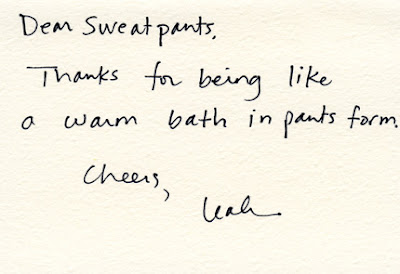 Dear Sweatpants,
Thanks for being like
a warm bath in pants form.
Cheers,
Leah